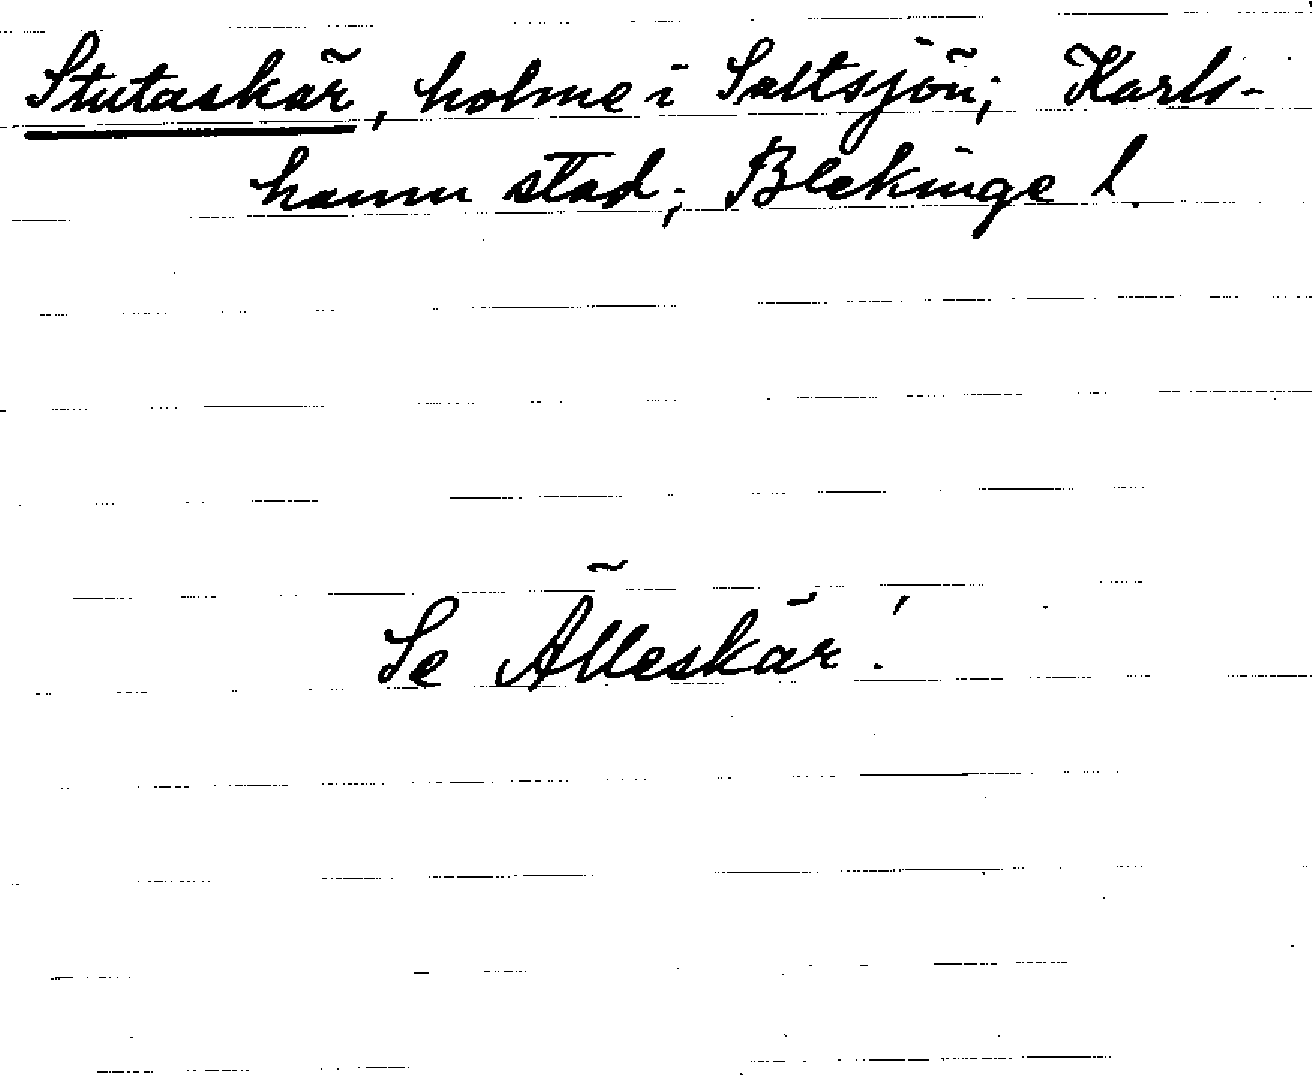 Stutaskär, holme i Saltsjön; Karls-
hamn stad; Blekinge l.
Se Älleskär!